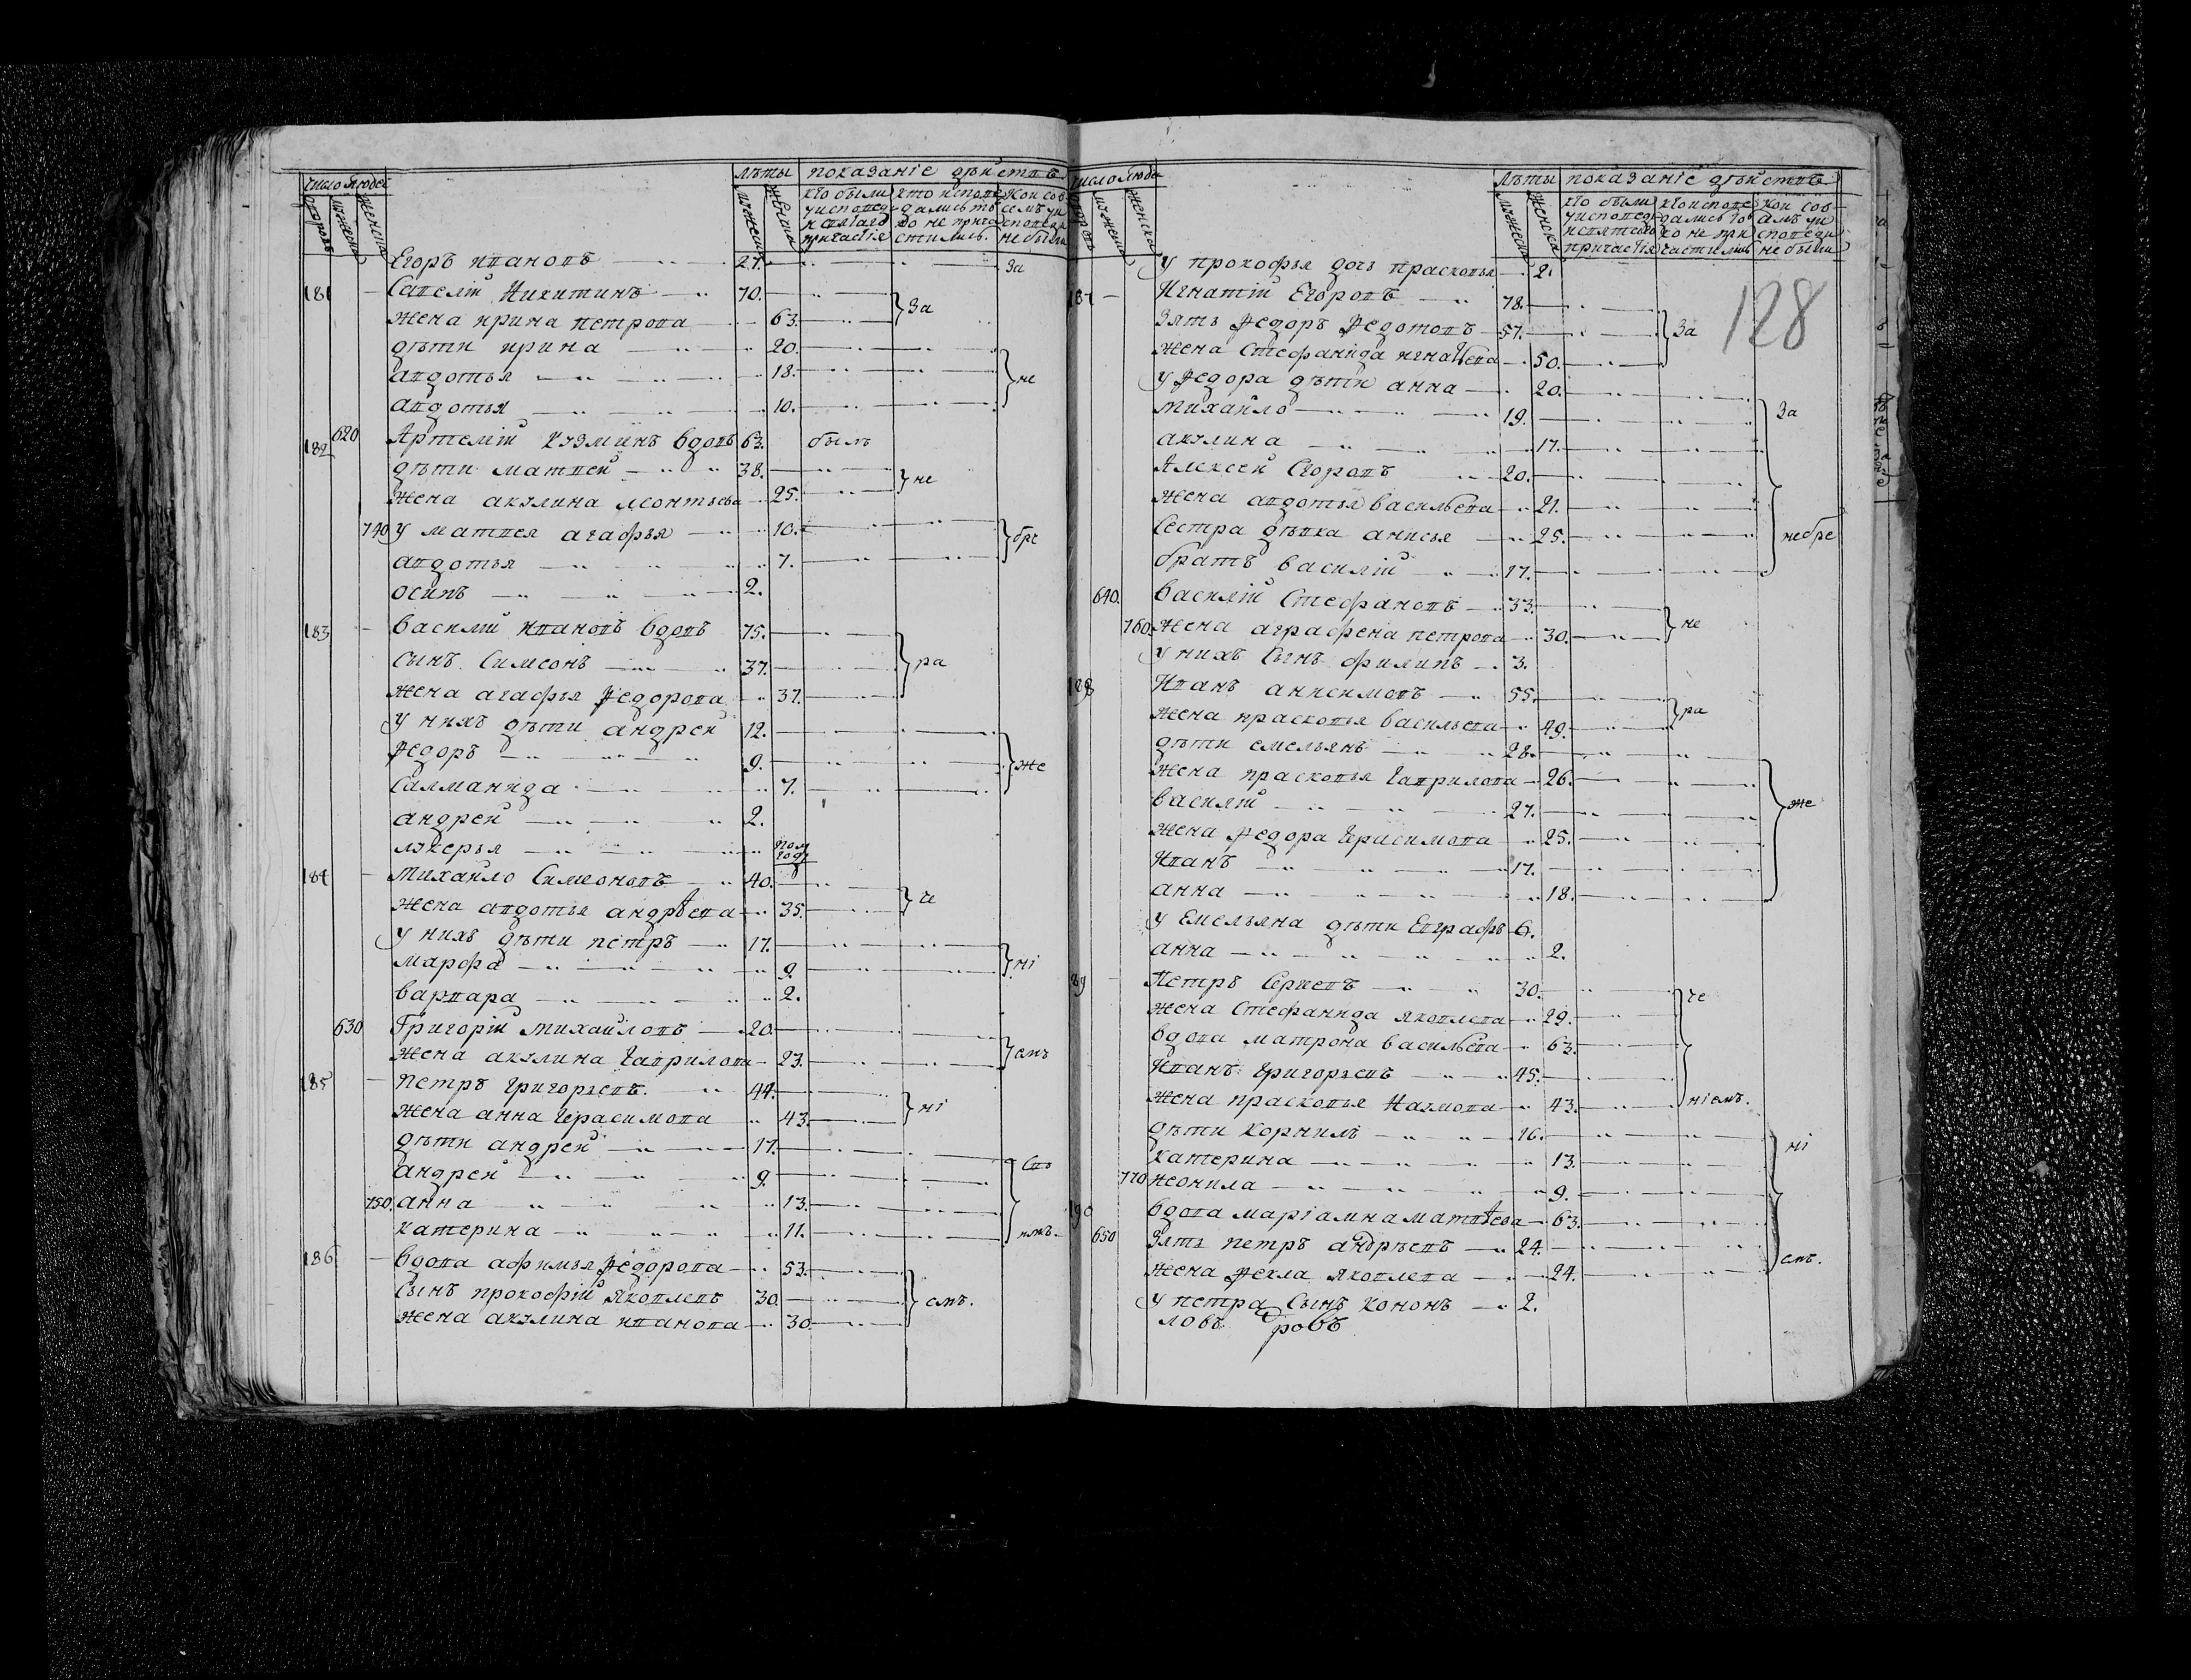 число людей
лѣты
показаніе дѣйствъ
дворовъ
мужеска
женска
мужеска
женска
кто были у исповеди и святаго причастія
кто исповедались токо не причастились.
кои совсемъ у исповеди не были
Егоръ Ивановъ 27. За
181 Савелій Никитинъ 70.
жена Ирина Петрова 63. За
дѣти Ирина 20.
Авдотья 18. не
Авдотья 10.
182 620 Артемій Кузминъ вдовъ 63. былъ
дѣти Матвей 38.
жена Акулина Леонтьева 25. не
740 у Матвея Агафья 10. бре
Авдотья 7.
Осипъ 2.
183 Василій Ивановъ вдовъ 75.
сынъ Симеонъ 37. ра
жена Агафья Ѳедорова 37.
у нихъ дѣти Андрей 12.
Ѳедоръ 9. же
Салманида 7.
Андрей 2.
Лукерья пол году
184 Михайло Симеоновъ 40.
жена Авдотья Андрѣева 35. че
у нихъ дѣти Петръ 17.
Марфа 9. ні
Варвара 2.
630 Григорій Михайловъ 20.
жена Акулина Гаврилова 23. емъ
185 Петръ Григорьевъ 44.
жена Анна Герасимова 43. ні
дѣти Андрей 17.
Андрей 9. Сво
750. Анна 13.
Катерина 11. имъ
186 вдова Афимья Ѳедорова 53.
Сынъ Прокофій Яковлевъ 30. емъ.
жена Акулина Иванова 30
число люде
лѣты
показаніе дѣйствъ
дворовъ
мужеска
женска
мужеска
женска
кто были у исповеди и святаго причастія
кто исповедались токо не причастились
кои совсемъ у исповеди не были
128
у Прокофья дочь Прасковья 2.
187 Игнатій Егоровъ 78.
Зять Ѳедоръ Ѳедотовъ 57. За
жена Стефанида Игнатьева 50.
у Ѳедора дѣти Анна 20.
Михайло 19. За
Акулина 17.
Алексей Егоровъ 20.
жена Авдотья Васильева 21.
Сестра дѣвка Анисья 25. небре
братъ Василій 17.
640. Василій Стефановъ 33.
760 жена Аграфена Петрова 30. не
у нихъ Сынъ Филипъ 3.
188 Иванъ Анисимовъ 55.
жена Прасковья Васильева 49. ра
дѣти Емельянъ 28.
жена Прасковья Гаврилова 26.
Василій 27. же
жена Ѳедора Герасимова 25.
Иванъ 17.
Анна 18.
у Емельяна дѣти Евграфъ 6.
Анна 2.
89 Петръ Сергеевъ 30. че
жена Стефанида Яковлева 29.
вдова Матрона Васильева 63.
Иванъ Григорьевъ 45.
жена Прасковья Наумова 43. ніемъ.
дѣти Корнилъ 16.
Катерина 13. ні
770 Неонила 9.
190 вдова Маріамна Матвѣева 63.
650 Зять Петръ Андрѣевъ 24.
жена Ѳекла Яковлева 24. емъ.
у Петра Сынъ Кононъ 2.